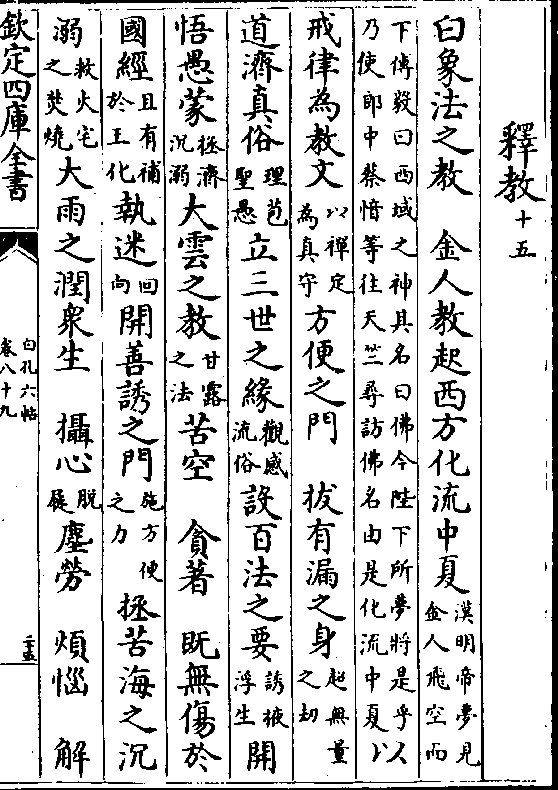 釋教十五
白象法之教　金人教起西方化流中夏漢明帝夢見金人飛空而
下傅毅曰西域之神其名曰佛今陛下所夢將是乎以
乃使郎中蔡愔等往天竺尋訪佛名由是化流中夏以
戒律為教文以禪定為真守方便之門　拔有漏之身起無量之劫
道濟真俗理苞聖愚立三世之緣觀感流俗設百法之要誘掖浮生開
悟愚蒙拯濟沉溺大雲之教甘露之法苦空　貪著　既無傷於
國經且有補於王化執迷回向開善誘之門施方便之力拯苦海之沉
溺救火宅之焚燒大雨之潤衆生　攝心脫屣塵勞　煩惱　解
欽定四庫全書
白孔六帖
卷八十九
二十五